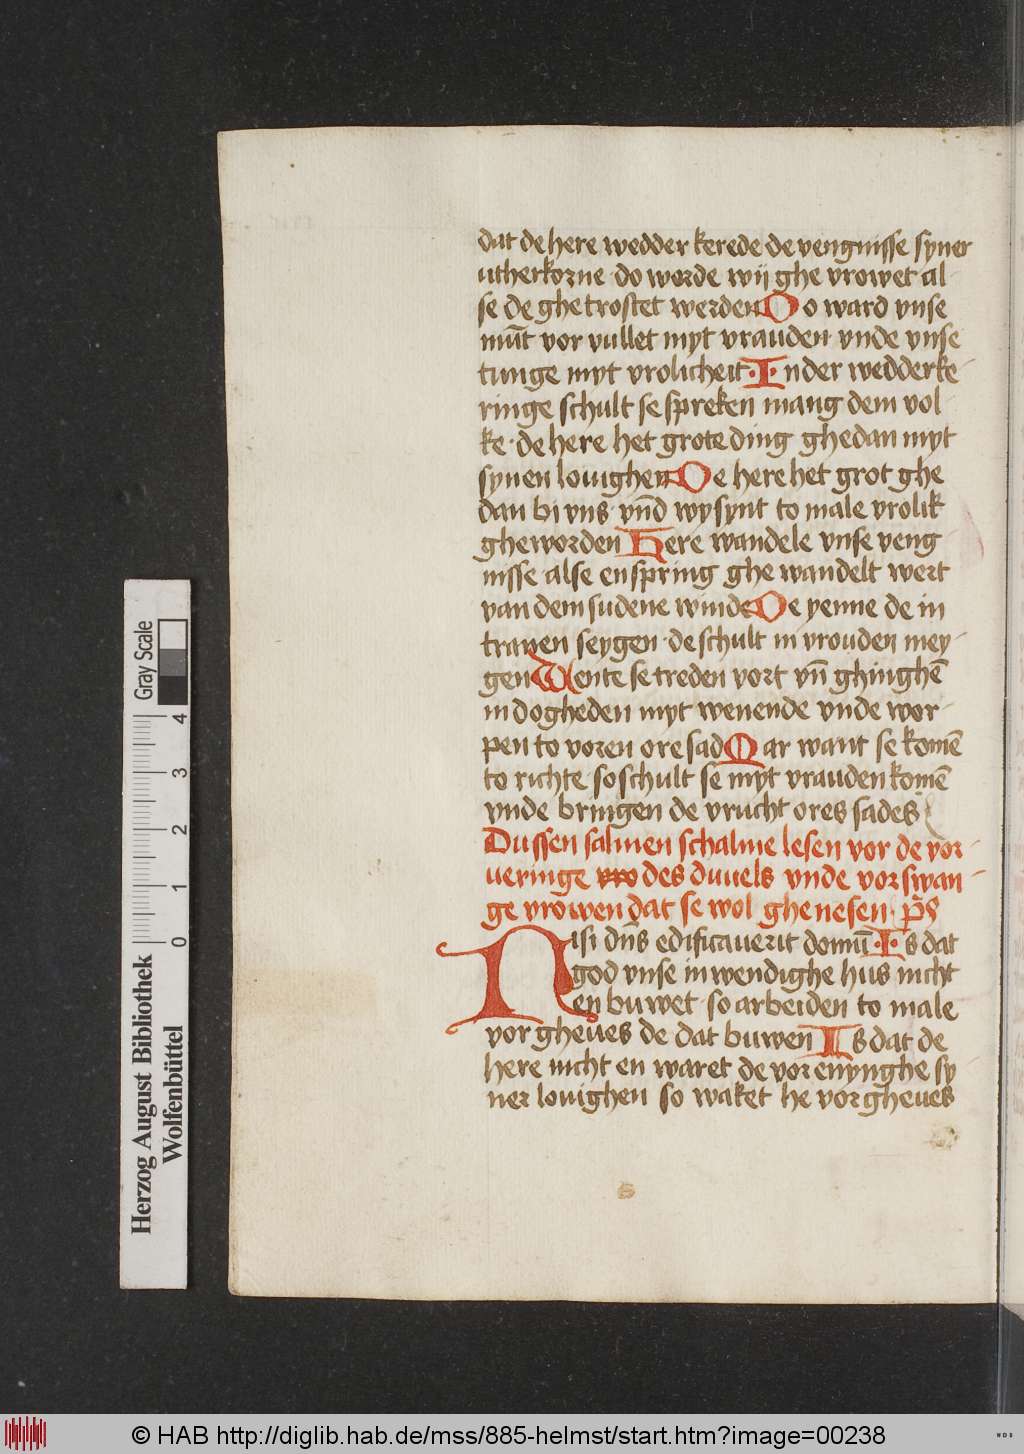 dat de here wedder kerede de vengnisse syner
utherkorne · do worde wij ghe vrowet al-
se de ghetrostet werden Do ward vnse
mūt vor vullet myt vrauden vnde vnse
tunge myt vrolicheit · In der wedderke-
ringe schult se spreken mang dem vol-
ke · de here het grote ding ghedan myt
synen louighen De here het grot ghe
dan bi vns · vn̄d wy synt to male vrolik
gheworden Here wandele vnse veng-
nisse alse en spring ghe wandelt wert
van dem sudene winde De yenne de in
tranen seygen · de schult in vrouden mey-
gen Wente se treden vort vn̄ ghinghē
in dogheden myt wenende vnde wor-
pen to voren ore sad Mar want se komē
to richte so schult se myt vrauden komē
vnde bringen de vrucht ores sades
Dussen salmen schalme lesen vor de vor-
ueringe vro des duuels vnde vor swan-
ge vrowen dat se wol ghenesen · p̄s
Nisi dn̄s edificauerit domū · Is dat
god vnse inwendighe hus nicht
en buwet · so arbeiden to male
vor gheues de dat buwen Is dat de
here nicht en waret de vorenynghe sy
ner louighen so waket he vorgheues
Gray Scale
4
3
2
1
0
Herzog August Bibliothek
Wolfenbüttel
© HAB http://diglib.hab.de/mss/885-helmst/start.htm?image=00238